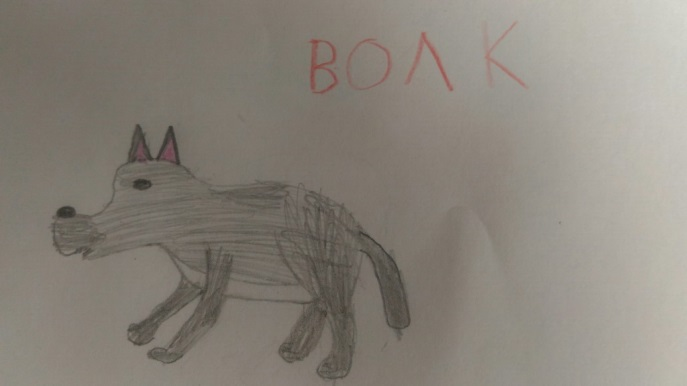 ВОЛК